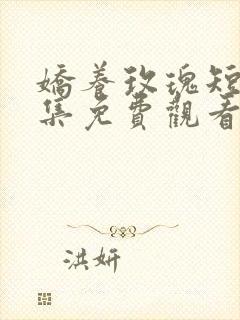 嬌養玫瑰短
集免費觀看
洪妍